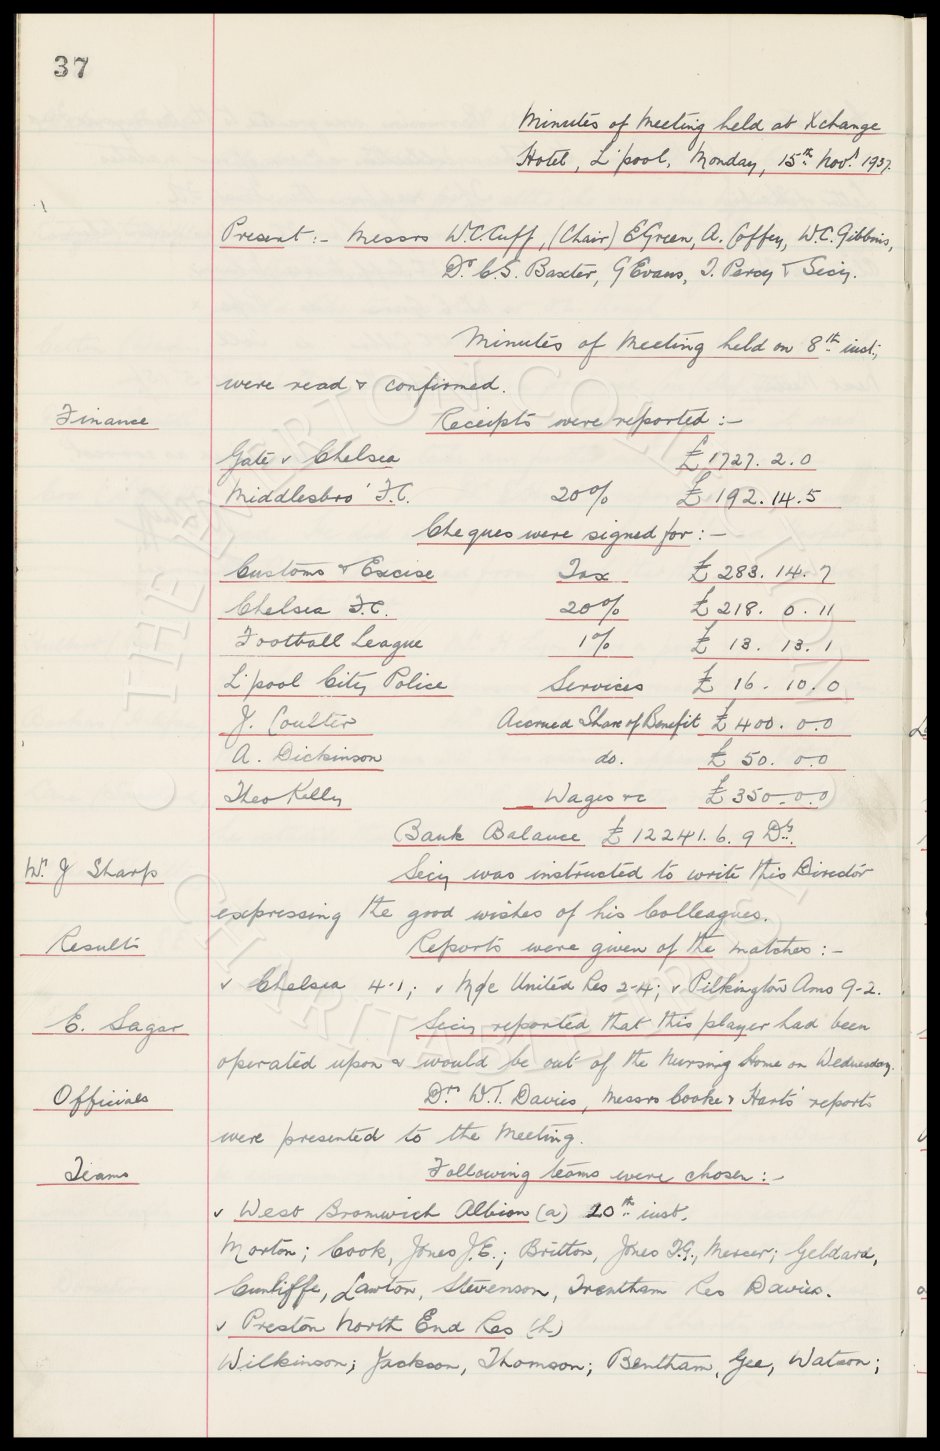 37
Minutes of Meeting held at Xchange
Hotel, L'pool, Monday, 15th Novr 1937.
Present:- Messrs W.C.Cuff, (Chair) E Green, A. Coffey, W.C. Gibbins,
Dr C.S. Baxter, G Evans, T. Percy & Secy.
Minutes of Meeting held on 8th inst;
were read & confirmed.
Finance
Receipts were reported:-
Gate v Chelsea £1727. 2. 0
Middlesbro' F.C. 20% £192. 14. 5
Cheques were signed for:-
Customs & Excise Tax £283. 14. 7
Chelsea F.C. 20% £218. 0. 11
Football League 1% £ 13. 13. 1
L'pool City Police Services £ 16. 10. 0
J. Coulter Accrued Share of Benefit £400. 0.0
A. Dickinson do. £ 50. 0.0
Theo Kelly Wages &c £350.0.0
Bank Balance £12241. 6. 9 Dr.
Mr J Sharp Secy was instructed to write this Director
expressing the good wishes of his Colleagues.
Results Reports were given of the matches:-
v Chelsea 4-1; v M/c United Res 2-4; v Pilkington Ams 9-2.
E. Sagar Secy reported that this player had been
operated upon & would be out of the Nursing Home on Wednesday.
Officials Dr. W.T. Davies, Messrs Cooke & Harts' reports
were presented to the Meeting.
Teams Following teams were chosen:-
v West Bromwich Albion (a) 20th inst.
Morton; Cook, Jones J.E.; Britton, Jones T.G., Mercer; Geldard,
Cunliffe, Lawton, Stevenson, Trentham Res Davies.
v Preston North End Res (h)
Wilkinson; Jackson, Thomson; Bentham, Gee, Watson;